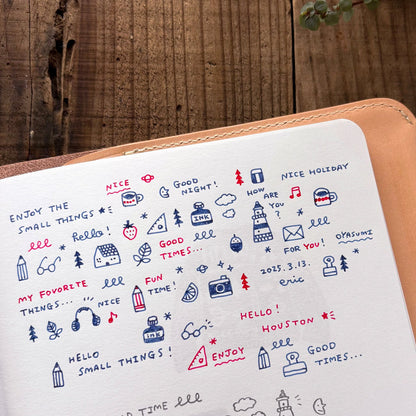 NICE
GOOD
NIGHT!
NICE HOLIDAY
HOW
ARE
YOU
?
ENJOY THE
SMALL THINGS
hello!
INK
GOOD
TIMES...
FOR YOU!
OYASUMI
MY FAVORITE
THINGS...
FUN
TIME!
2025.3.13.
eric
NICE
INK
HELLO!
HOUSTON
HELLO
SMALL THINGS!
ENJOY
GOOD
TIMES...
OD TIME